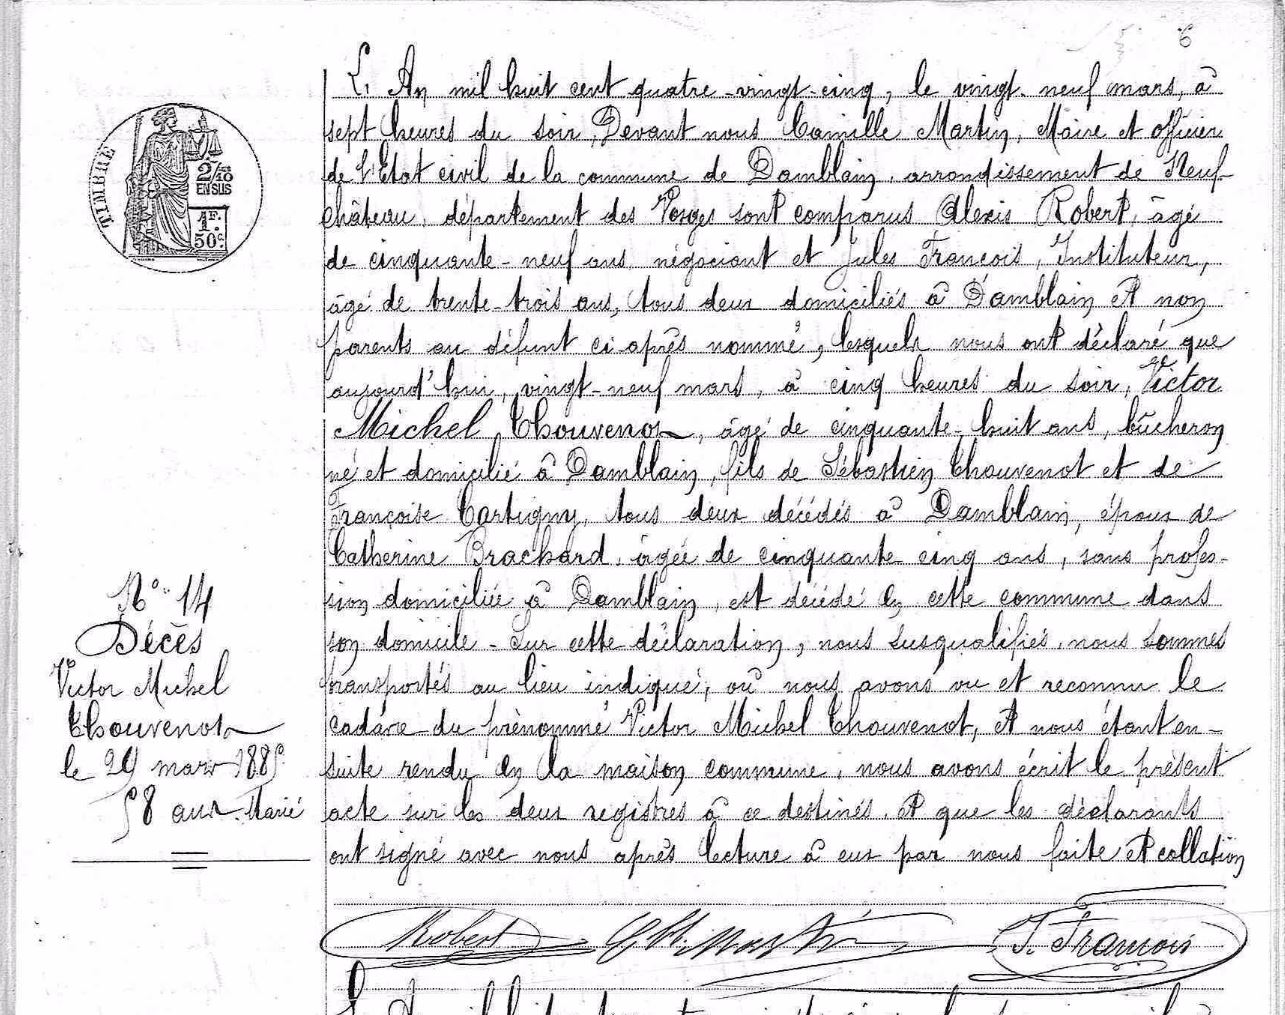 6
TIMBRE
2/10 EN SUS
1F. 50c
L'An mil huit cent quatre-vingt-cinq, le vingt-neuf mars, à
sept heures du soir, Devant nous Camille Martin, Maire et officier
de l'Etat civil de la commune de Damblain, arrondissement de Neuf-
château, département des Vosges sont comparus Alexis Robert, âgé
de cinquante-neuf ans négociant et Jules François, Instituteur,
âgé de trente-trois ans, tous deux domiciliés à Damblain et non
parents au défunt ci-après nommé, lesquels nous ont déclaré que
aujourd'hui, vingt-neuf mars, à cinq heures du soir, Victor
Michel Thouvenot, âgé de cinquante-huit ans, bûcheron
né et domicilié à Damblain, fils de Sébastien Thouvenot et de
Françoise Cartigny, tous deux décédés à Damblain, époux de
Catherine Brachard, âgée de cinquante cinq ans, sans profes-
sion domiciliée à Damblain, est décédé en cette commune dans
son domicile - Sur cette déclaration, nous susqualifiés, nous sommes
transportés au lieu indiqué, où nous avons vu et reconnu le
cadavre du prénommé Victor Michel Thouvenot, et nous étant en-
suite rendu en la maison commune, nous avons écrit le présent
acte sur les deux registres à ce destinés. Et que les déclarants
ont signé avec nous après lecture à eux par nous faite et collation
N° 14
Décès
Victor Michel
Thouvenot
le 29 mars 1885
58 ans. Marié
Robert Martin J. François